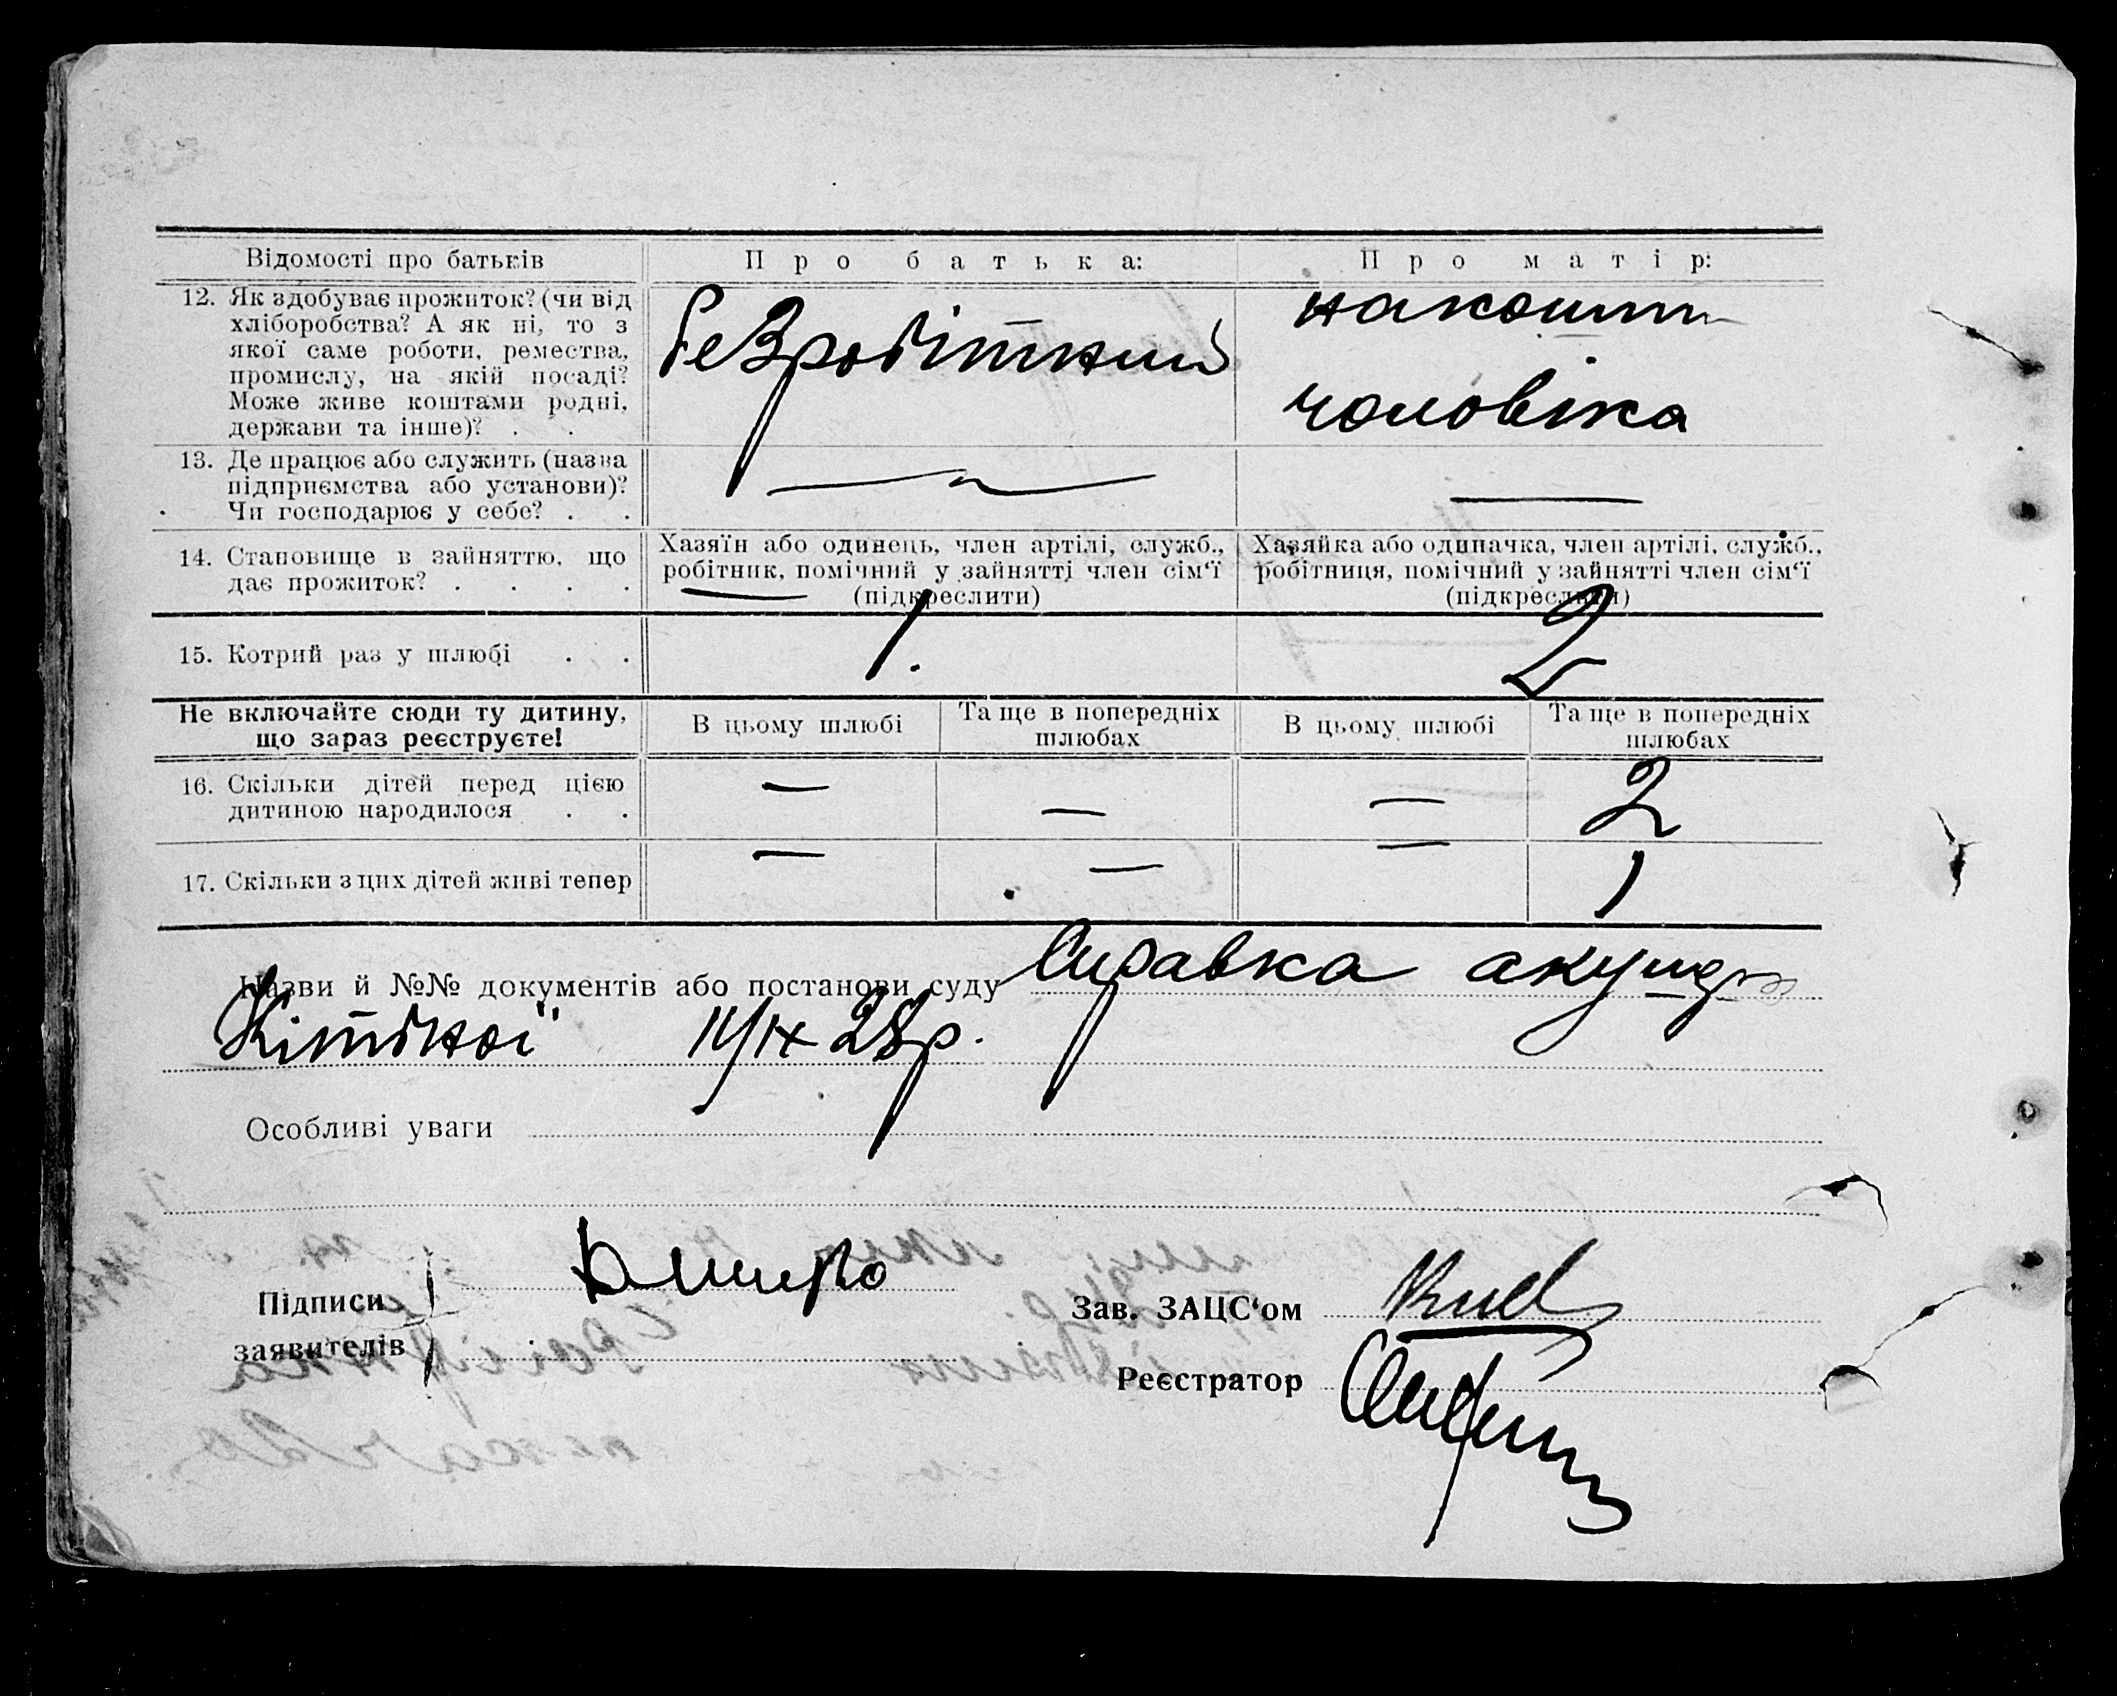 Відомості про батьків
Про батька:
Про матір:
12. Як здобуває прожиток? (чи від
хліборобства? А як ні, то з
якої саме роботи, ремества,
промислу, на якій посаді?
Може живе коштами родні,
держави та інше)? . .
безробітний
на кошти
чоловіка
13. Де працює або служить (назва
підприємства або установи)?
Чи господарює у себе? . .
—
—
14. Становище в зайняттю, що
дає прожиток? . . . .
Хазяїн або одинець, член артілі, служб.,
робітник, помічний у зайнятті член сім‘ї
(підкреслити)
Хазяйка або одиначка, член артілі, служб.,
робітниця, помічний у зайнятті член сім‘ї
(підкреслити)
15. Котрий раз у шлюбі . .
1.
2
Не включайте сюди ту дитину,
що зараз реєструєте!
В цьому шлюбі
Та ще в попередніх
шлюбах
В цьому шлюбі
Та ще в попередніх
шлюбах
16. Скільки дітей перед цією
дитиною народилося . .
—
—
—
2
17. Скільки з цих дітей живі тепер
—
—
—
1
Назви й №№ документів або постанови суду Справка акушер
28р.
Особливі уваги
Підписи
заявителів
Зав. ЗАЦС‘ом
Реєстратор